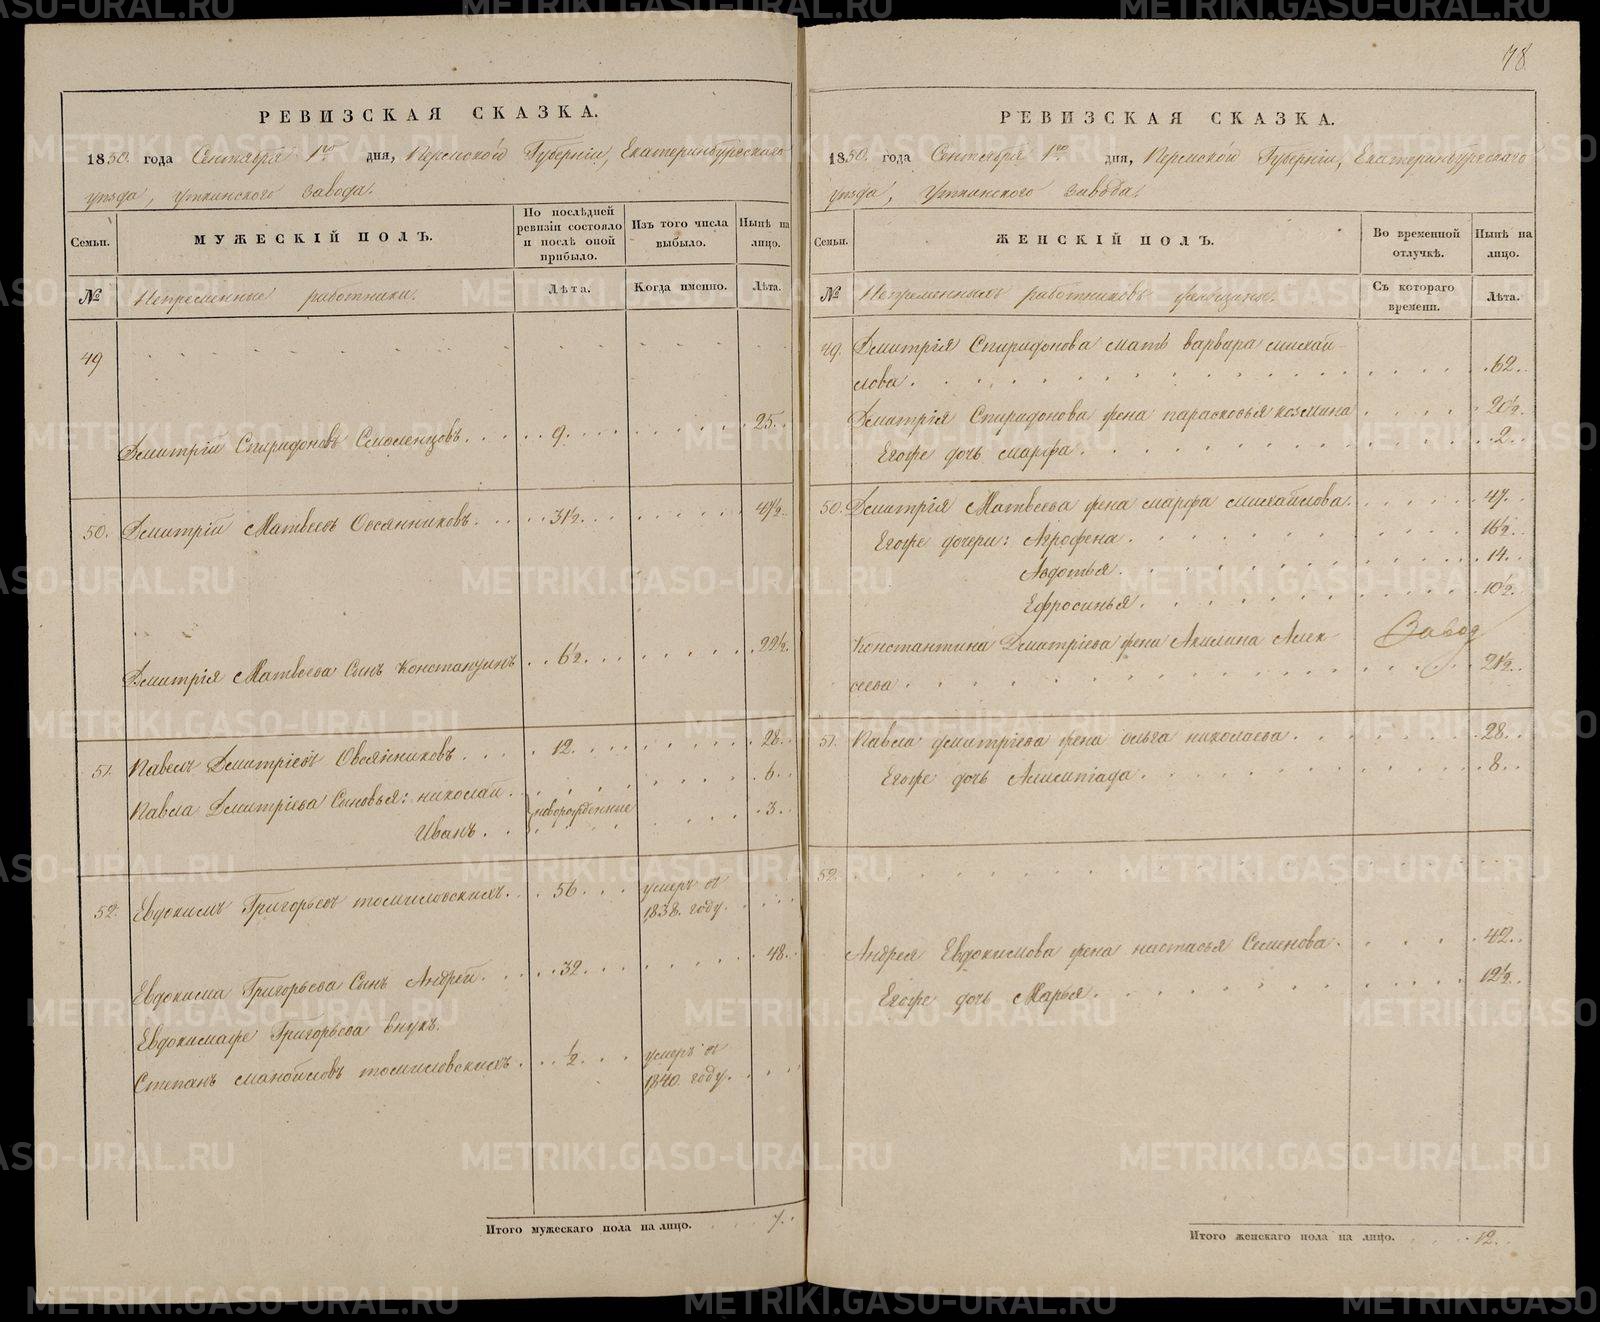 78
РЕВИЗСКАЯ СКАЗКА.
1850. года Сентября 1го дня, Пермской Губерніи, Екатеринбургскаго
уѣзда, Уткинского Завода.
Семьи.
МУЖЕСКІЙ ПОЛЪ.
По послѣдней ревизіи состояло и послѣ оной прибыло.
Изъ того числа выбыло.
Нынѣ на лицо.
№
Непременные работники.
Лѣта.
Когда именно.
Лѣта.
49
Дмитрій Спиридоновъ Смоленцовъ. 9. 25.
50. Дмитрій Матвеевъ Овсянниковъ. 31½. 47½.
Дмитрія Матвеева Сынъ Константинъ 6½. 22½.
51. Павелъ Дмитріевъ Овсянниковъ. 12. 28.
Павла Дмитріева Сыновья: николай 6.
новорожденные
Иванъ. 3.
52. Евдокимъ Григорьевъ томиловскихъ. 56. умеръ въ
1838. году.
Евдокима Григорьева Сынъ Андрей. 32. 48.
Евдокимаже Григорьева внукъ.
Степанъ мануиловъ томиловскихъ. ½. умеръ въ
1840. году.
Итого мужескаго пола на лицо. 7.
РЕВИЗСКАЯ СКАЗКА.
1850. года Сентября 1го дня, Пермской Губерніи, Екатеринбургскаго
уѣзда, Уткинского завода.
Семьи.
ЖЕНСКІЙ ПОЛЪ.
Во временной отлучкѣ.
Нынѣ на лицо.
№
Непременныхъ работниковъ женщины.
Съ котораго времени.
Лѣта.
49. Дмитрія Спиридонова мать варвара михай-
лова. 62.
Дмитрія Спиридонова жена парасковья козмина 20½.
Егоже дочь марфа. 2.
50. Дмитрія Матвеева жена марфа михайлова. 47.
Егоже дочери: Агрофена. 16½.
Авдотья. 14.
Ефросинья. 10½.
Константина Дмитріева жена Акилина Алек
сеева. 21½.
Завод
51. Павла дмитріева жена ольга николаева. 28.
Егоже дочь Алимпіада. 8.
52.
Андрея Евдокимова жена настасья Семинова. 42.
Егоже дочь Марья. 12½.
Итого женскаго пола на лицо. 12.
METRIKI.GASO-URAL.RU